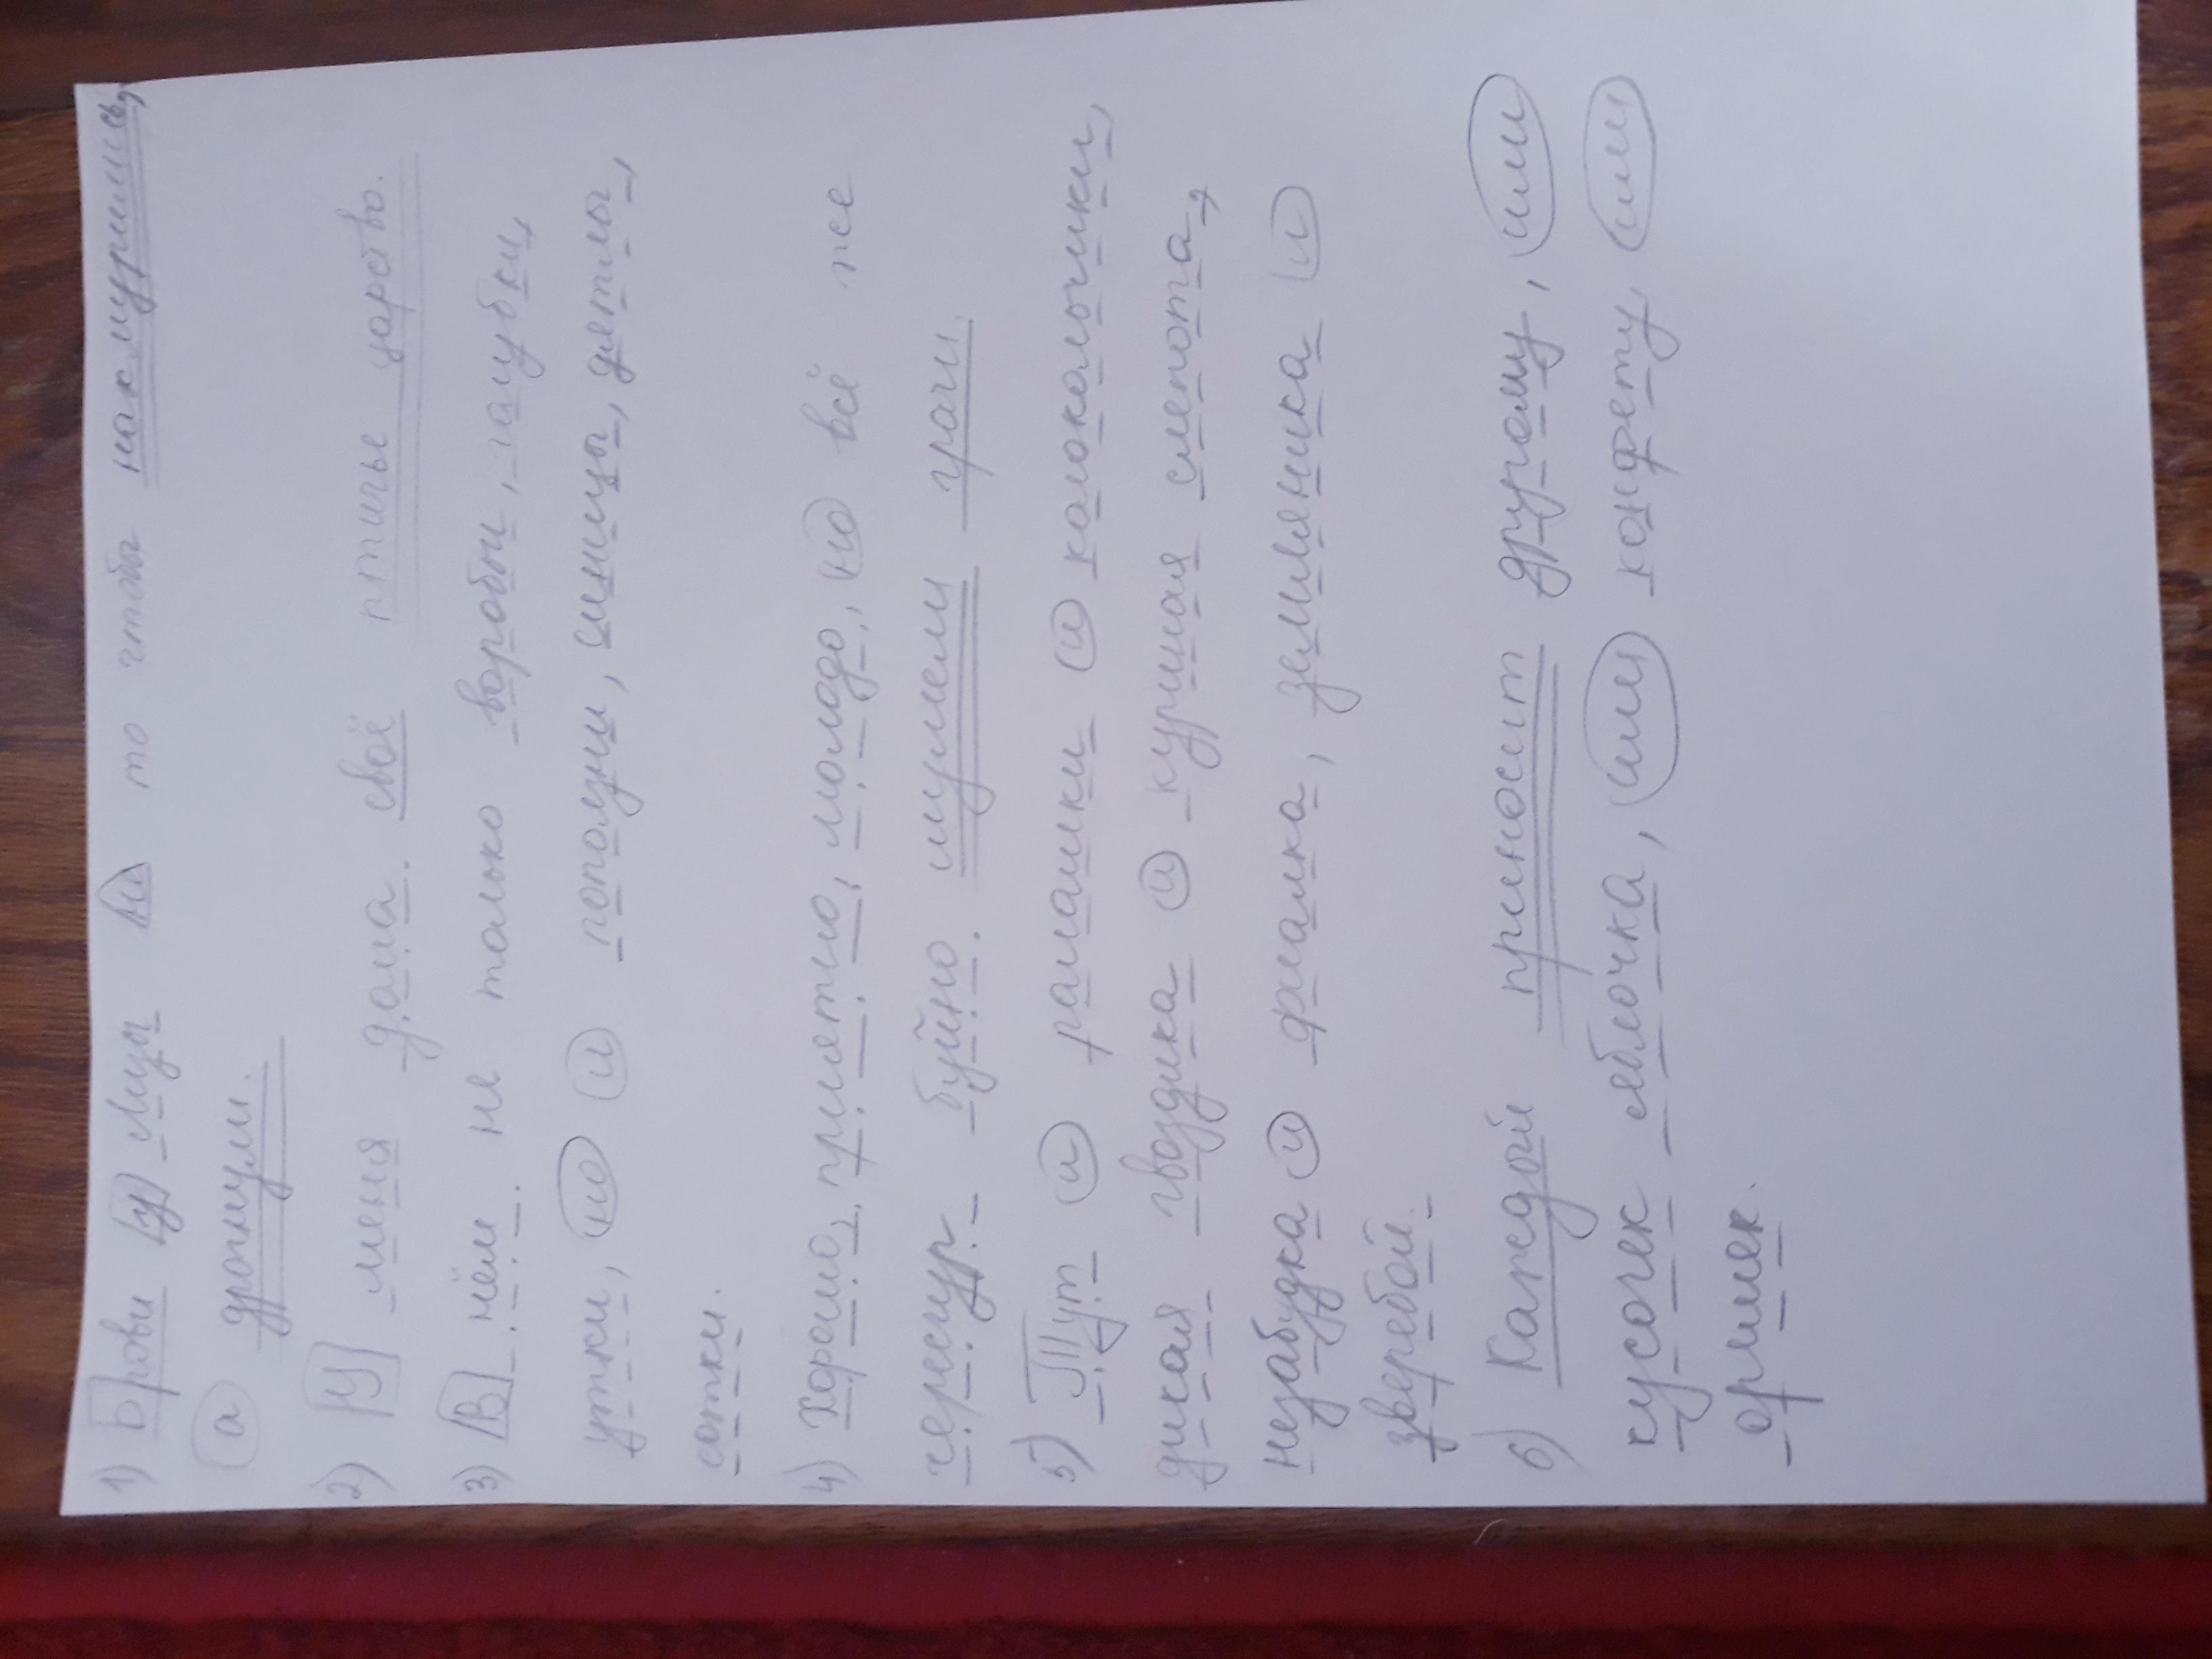 1) Брови у Лизы не то чтобы нахмурились,
а дрогнули.
2) У меня дома своё птичье царство.
3) В нём не только воробьи, галубки,
утки, но и поползни, синицы, дятлы,
сотки.
4) Хорошо, приятно, молодо, но всё же
чересчур буйно шумели грачи.
5) Тут и ромашки и колокольчики,
дикая гвоздика и куриная слепота,
незабудка и фиалка, земляника и
зверебой.
6) Каждой приносит другому, или
кусочек яблочка, или конфету, или
орешек.